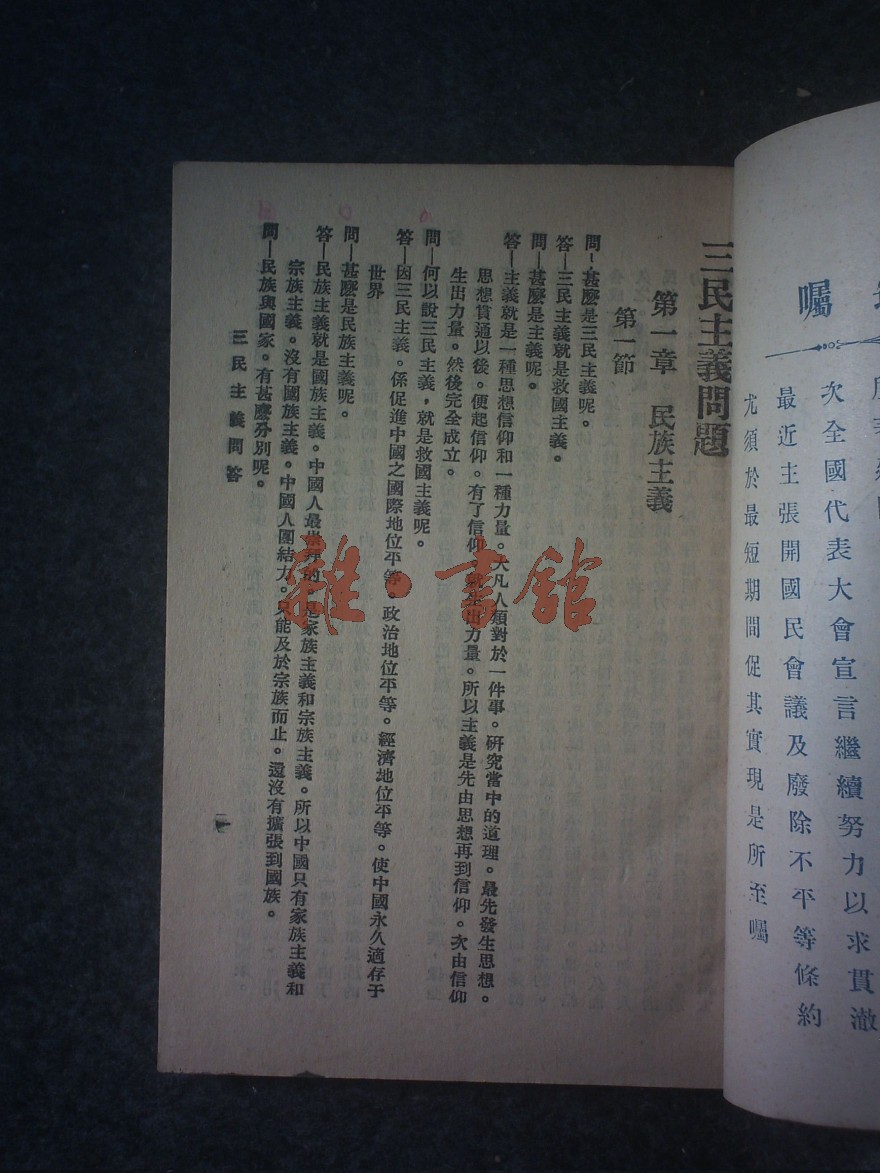 囑
次全國代表大會宣言繼續努力以求貫澈
最近主張開國民會議及廢除不平等條約
尤須於最短期間促其實現是所至囑
三民主義問題
第一章 民族主義
第一節
問—甚麽是三民主義呢。
答—三民主義就是救國主義。
問—甚麽是主義呢。
答—主義就是一種思想信仰和一種力量。大凡人類對於一件事。研究當中的道理。最先發生思想。
思想貫通以後。便起信仰。有了信仰。就生出力量。所以主義是先由思想再到信仰。次由信仰
生出力量。然後完全成立。
問—何以說三民主義，就是救國主義呢。
答—因三民主義。係促進中國之國際地位平等。政治地位平等。經濟地位平等。使中國永久適存于
世界
問—甚麽是民族主義呢。
答—民族主義就是國族主義。中國人最崇拜的。是家族主義和宗族主義。所以中國只有家族主義和
宗族主義。沒有國族主義。中國人團結力。只能及於宗族而止。還沒有擴張到國族。
問—民族與國家。有甚麽分別呢。
三民主義問答
一
雜·書館